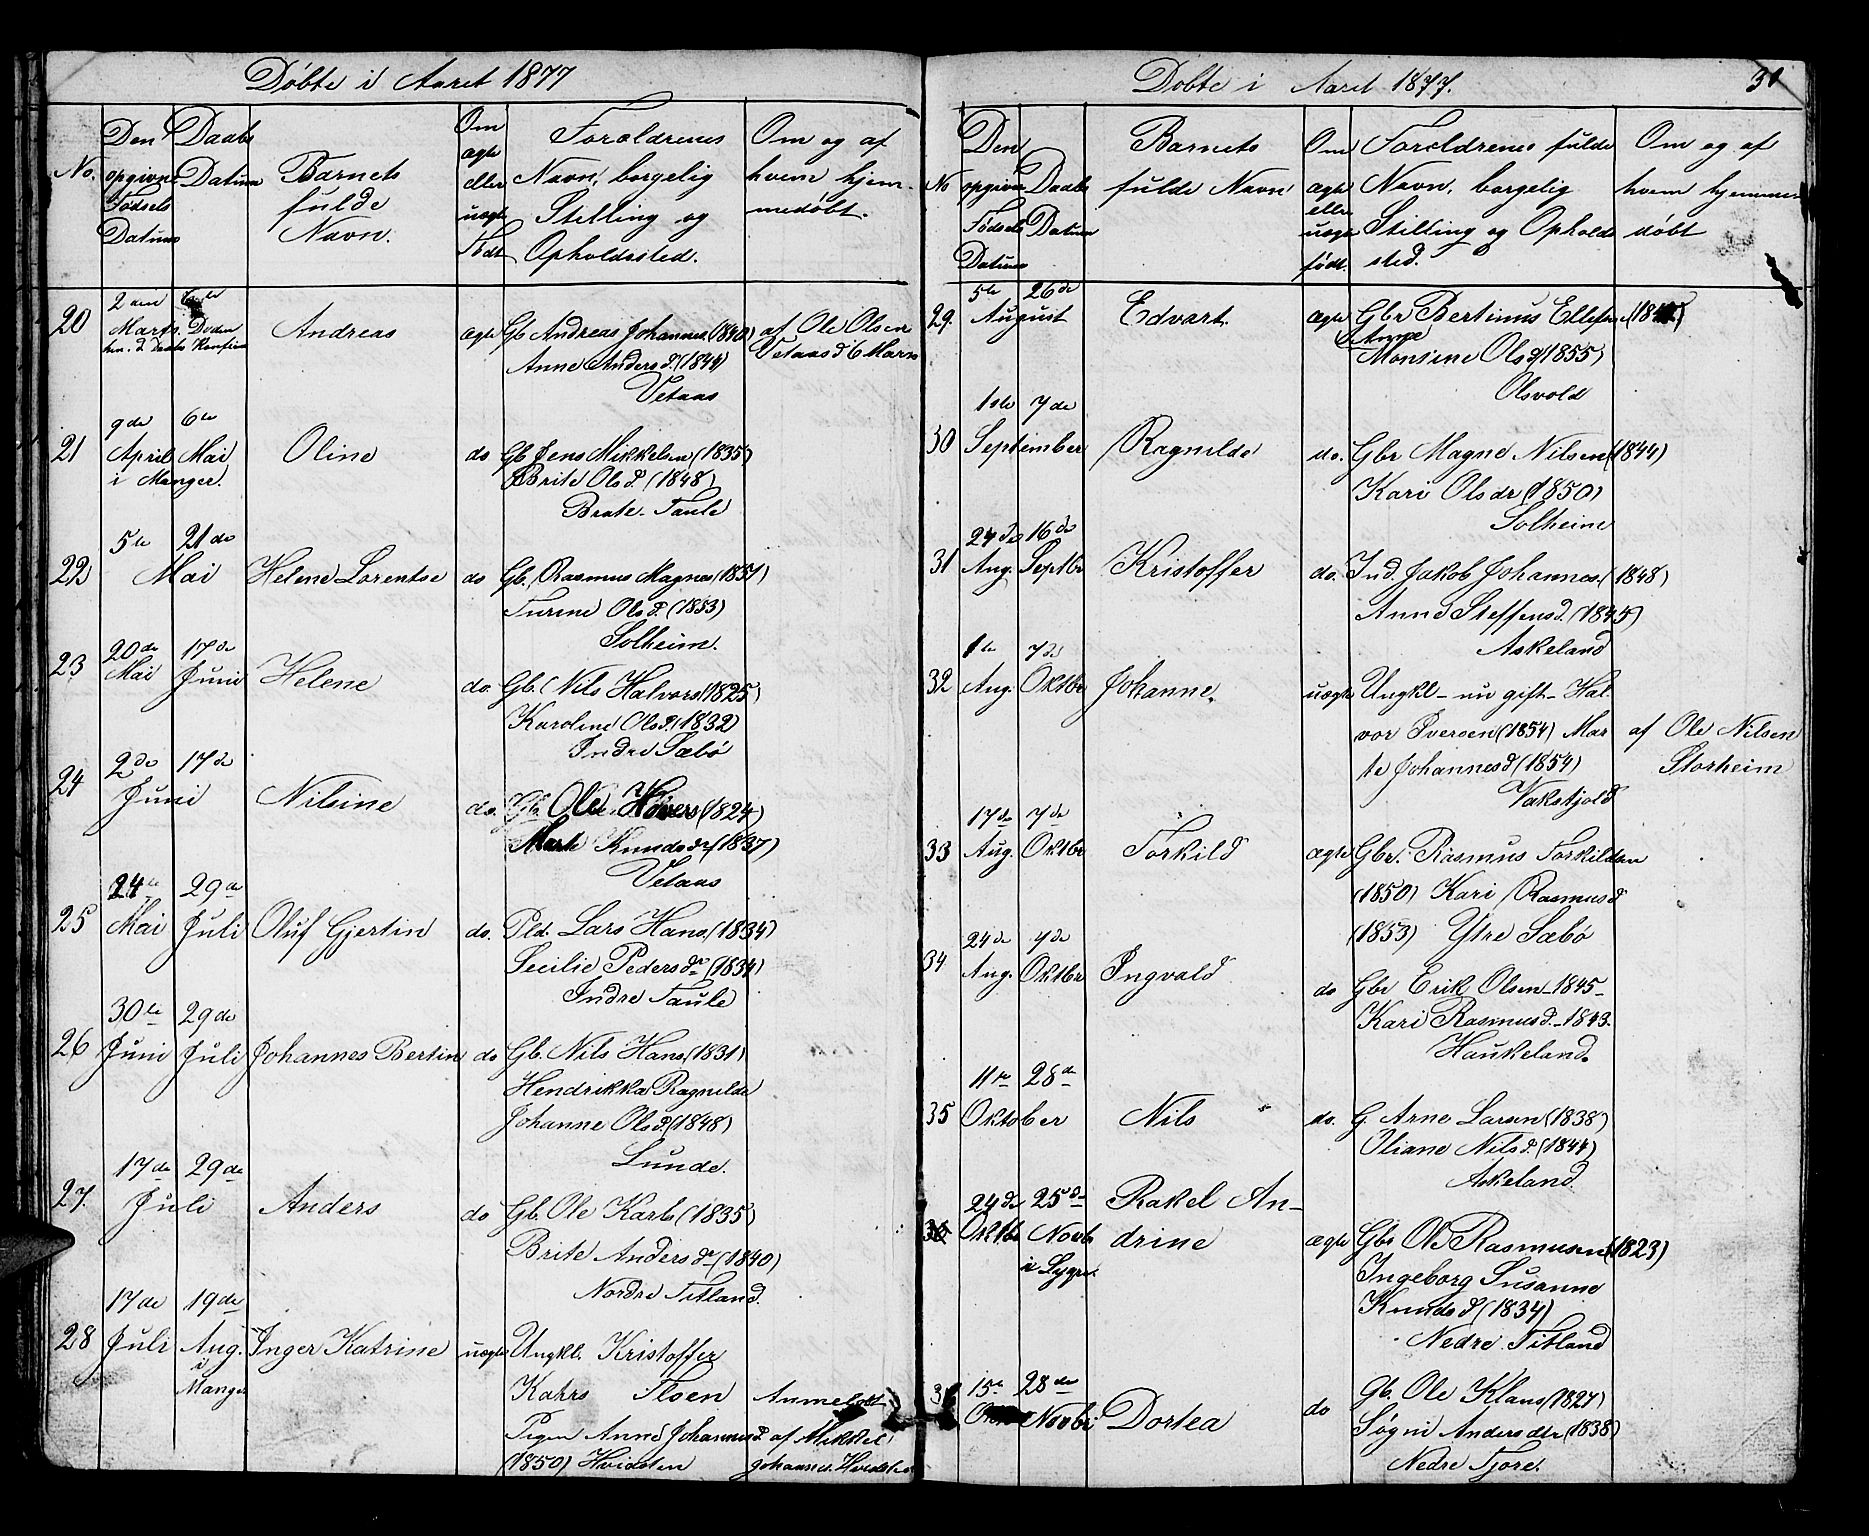 Døbte i Aaret 1877
No.
Den opgivne Fødsels Datum
Daabs Datum
Barnets fulde Navn.
Om ægte eller uægte Født
Forældrenes Navn, borgelig Stilling og Opholdssted.
Om og af hvem hjemmedøbt.
20 2den Marts Andreas ægte Gb Andreas Johannes. (1840) af Ole Olsen
Anne Anders d. (1844) Vetaas d 6 Marts
Vetaas
9de 6te
21 April Mai Oline do Gb Jens Mikkelsen (1835)
i Manger. Brite Ols d. (1848)
Brate. Taule
5te 21de
22 Mai Helene Lorentse do Gb. Rasmus Magnes. (1851)
Turine Ols d. (1853)
Solheim.
20de 17de
23 Mai Juni Helene do. Gb. Nils Halvors. (1825)
Karoline Ols d. (1832)
Indre Sæbø
2de 17de
24 Juni Nilsine do. Gb. Ole (1824)
Marte Knuds dr (1837)
Vetaas
24de 29de
25 Mai Juli Oluf Gjertin do. Pld. Lars Hans. (1834)
Secilie Peders dr (1834)
Indre Taule
30te 29de
26 Juni Juli Johannes Bertin do Gb. Nils Hans. (1831)
Hendrikka Ragnilda
Johanne Ols d. (1848)
Lunde.
17de 29de
27. Juli Anders do Gb. Ole Karls. (1835)
Brite Anders dr (1840)
Nordre Titland.
17de 19de
28 Juli Aug. Inger Katrine uægte Ungkl. Kristoffer
i Manger Kahrs Floen Anmeldt
Pigen Anne Johannes d. af Mikkel
(1850) Hvidsten Johannes. Hvidsten
Døbte i Aaret 1877. 31
No
Den opgivne Fødsels Datum
Daabs Datum
Barnets fulde Navn
Om ægte eller uægte født.
Forældrenes fulde Navn, borgelig Stilling og Opholdssted.
Om og af hvem hjemmedøbt
5te 26de
29. August Edvart. ægte Gbr Bertinus Ellefsen
Anne
Monsine Ols d (1855)
Olsvold
1ste 7de
30 September Ragnilde do. Gbr Magne Nilsen (1844)
Kari Ols dr (1850)
Solheim
24de 16de
31 Aug. Septbr Kristoffer do. Ind. Jakob Johannes. (1848)
Anne Steffens d. (1845)
Askeland
1te 7de
32 Aug. Oktbr Johanne. uægte Ungkl – nu gift – Hal
vor Iversen (1854) Mar af Ole Nilsen
te Johannes d (1854) Storheim
Vakstjold
17de 7de
33 Aug. Oktbr Torkild ægte Gbr. Rasmus Torkildsen
(1850) Kari Rasmus d
(1853) Ytre Sæbø
24de 7de
34 Aug. Oktbr Ingvald do Gbr Erik Olsen – 1845 –
Kari Rasmus d. – 1843.
Haukeland.
11te 28de
35 Oktober Nils do. G. Arne Larsen (1838)
Oliane Nils d. (1844)
Askeland.
24de 25de Rakel An-
36 Oktbr Novb drine ægte Gbr Ole Rasmusen (1823)
i Lygre. Ingeborg Susanne
Knuds d (1834)
Nedre Titland
15de 28de
Novbr Dortea do Gb. Ole Klaus. (1827)
Søgni Anders dtr (1838)
Nedre Fjore.